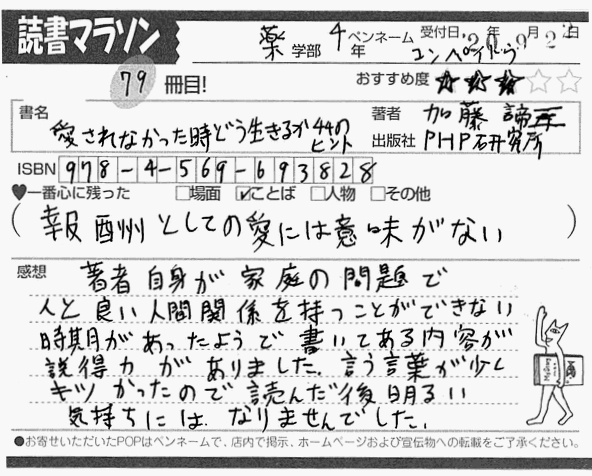 読書マラソン
薬学部 4年 ペンネーム コンペイトウ 受付日 '20年9月2日
79 冊目!
おすすめ度 ★★★☆☆
書名 愛されなかった時どう生きるか 44のヒント
著者 加藤諦三
出版社 PHP研究所
ISBN 978-4-569-693828
♥一番心に残った □場面 ☑ことば □人物 □その他
(報酬としての愛には意味がない)
感想 著者自身が家庭の問題で
人と良い人間関係を持つことができない
時期があったようで書いてある内容が
説得力がありました。言う言葉が少し
キツかったので読んだ後明るい
気持ちにはなりませんでした。
●お寄せいただいたPOPはペンネームで、店内で掲示、ホームページおよび宣伝物への転載をご了承ください。